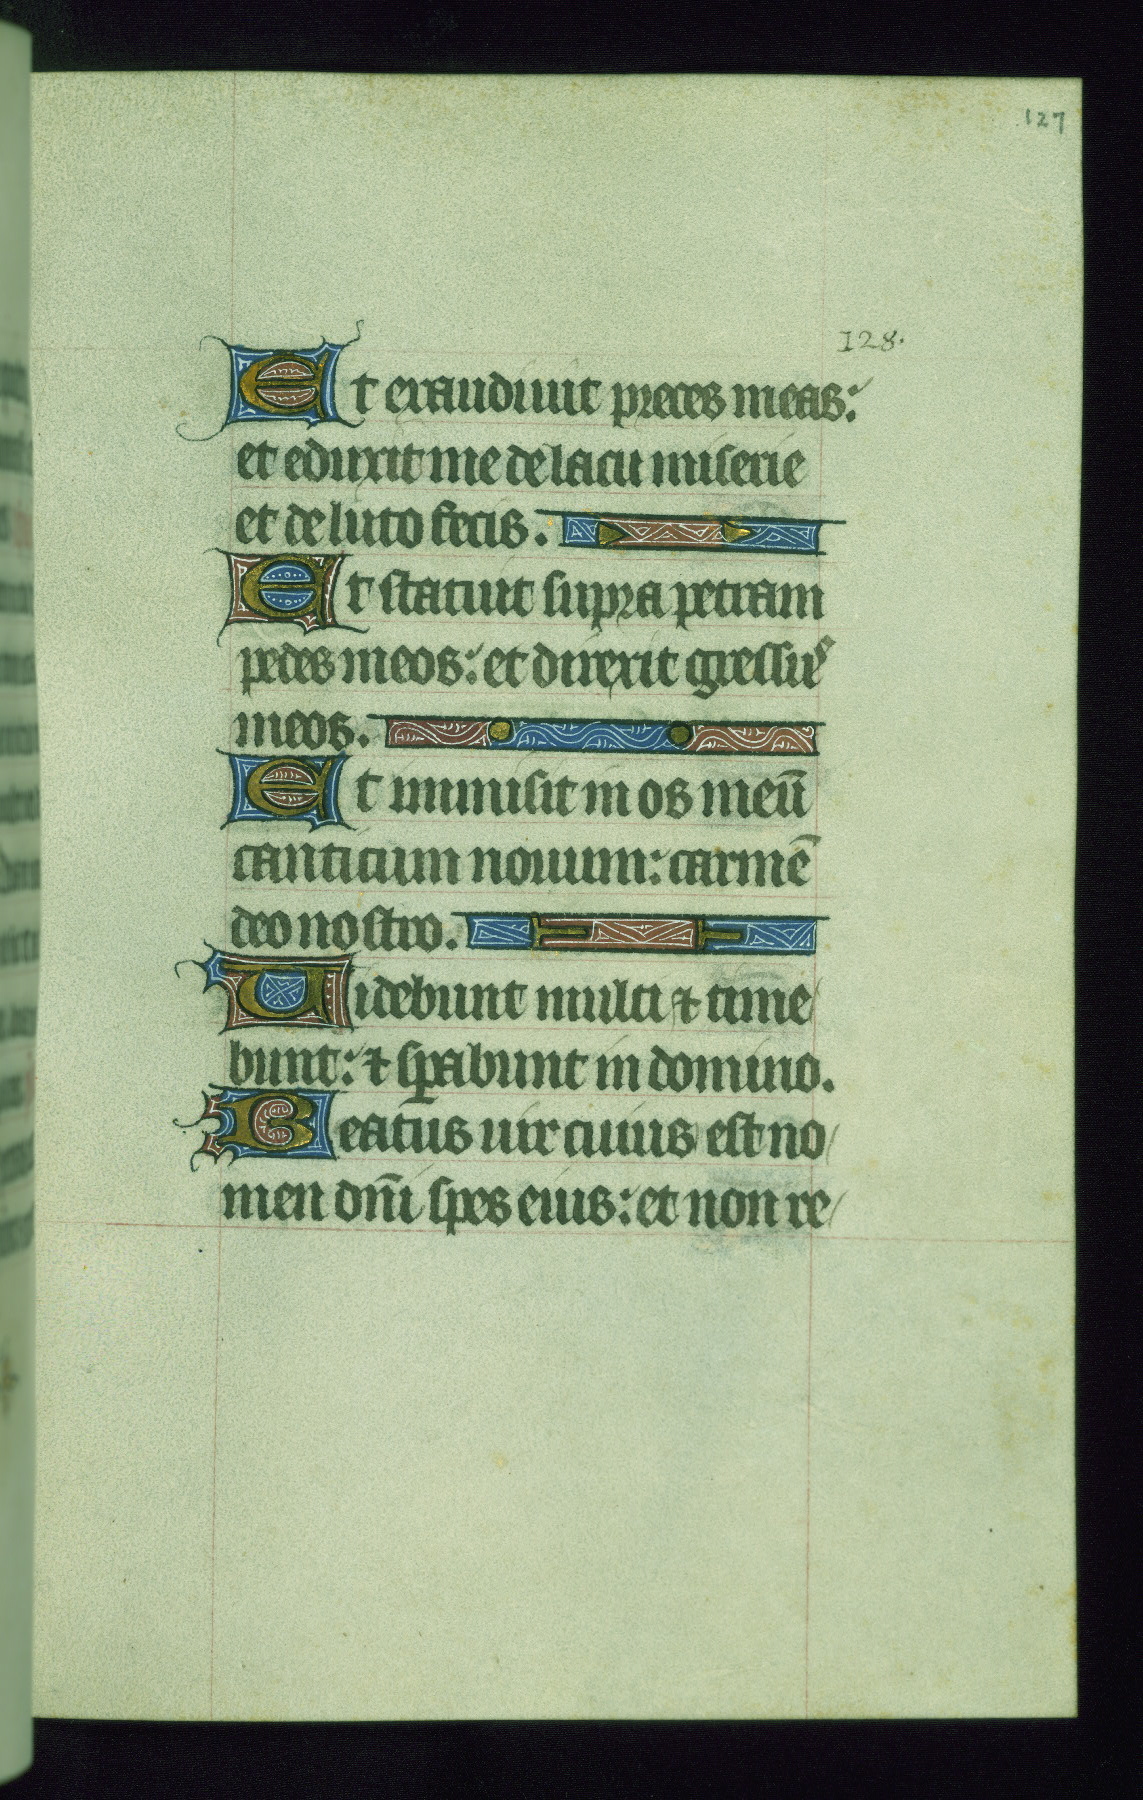 127
128.
Et exaudiuit preces meas:
et eduxit me de lacu miserie
et de luto fecis.
Et statuit supra petram
pedes meos: et direxit gressus
meos.
Et immisit in os meū
canticum nouum: carmē
deo nostro.
Uidebunt multi ⁊ time
bunt: ⁊ sꝑabunt in domino.
Beatus uir cuius est no
men dn̄i spes eius: et non re